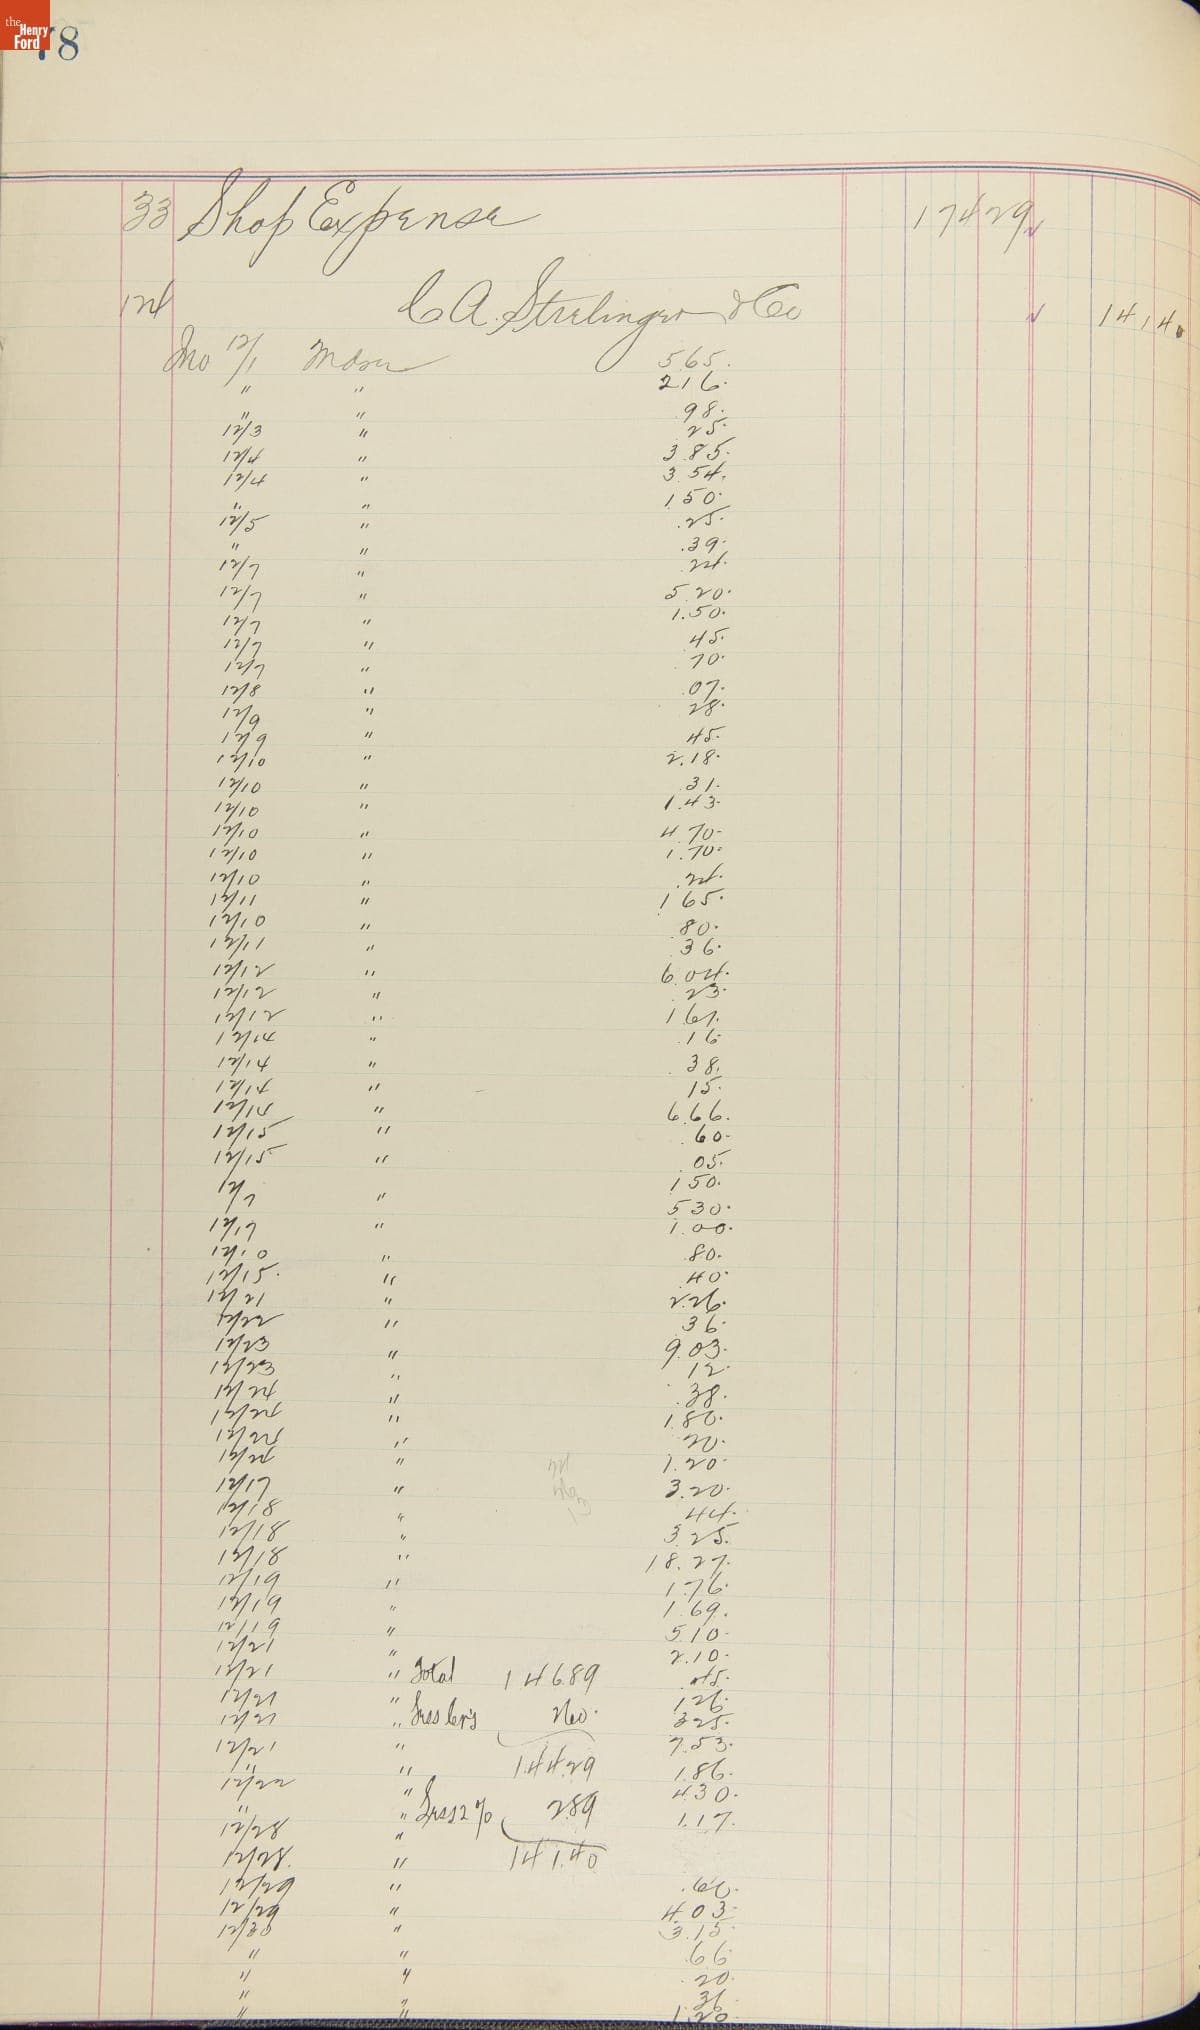 the Henry Ford
78
33 Shop Expense 174 29
124 C A. Strelinger & Co 141 40
12/1 Mdse 5.65.
" " 2 16.
" " .98.
12/3 " .25.
12/4 " 3 85.
12/4 " 3 54.
" " 1 50.
12/5 " .25.
" " .39.
12/7 " .24.
12/7 " 5.20.
12/7 " 1.50.
12/7 " .45.
12/7 " .70.
12/8 " .07.
12/9 " .28.
12/9 " .45.
12/10 " 2.18.
12/10 " .31.
12/10 " 1.43.
12/10 " 4.70.
12/10 " 1.70.
12/10 " .24.
12/11 " 1 65.
12/10 " .80.
12/11 " .36.
12/12 " 6.04.
12/12 " .23.
12/12 " 1 67.
12/14 " .16
12/14 " .38.
12/14 " .15.
12/14 " 6.66.
12/15 " .60.
12/15 " .05.
1 50.
12/7 " 5 30.
12/17 " 1.00.
12/10 " .80.
12/15. " .40.
12/21 " 2.26.
12/22 " .36.
12/23 " 9.03.
12/23 " .12.
12/24 " .38.
12/24 " 1.80.
12/24 " .20.
12/24 " 1.20.
12/17 " 3.20.
12/18 " .44.
12/18 " 3.25.
12/18 " 18.27.
12/19 " 1.76.
12/19 " 1.69.
12/19 " 5.10.
12/21 " 2.10.
12/21 " Total 146.89 .45.
12/21 " 1 26.
12/21 " 2 60. 3 25.
12/21 " 7.53.
" " 144.29 1.86.
12/22 " 4.30.
" " Less 2% 2.89 1.17.
12/28 "
12/28. " 141.40
12/29 " .60.
12/29 " 4.03.
12/30 " 3.15.
" " .66
" " .20.
" " .36.
" " 1.20